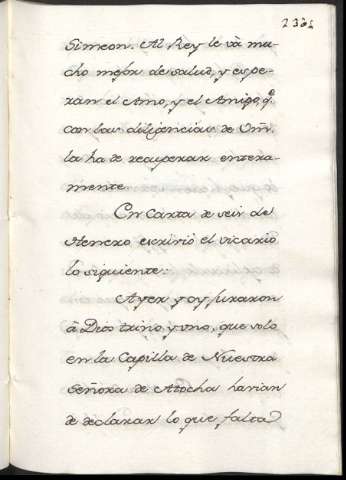 Simeon. Al Rey le vâ mu-
cho mejor de salud, y espe-
ran el Amo, y el Amigo, q.ᵉ
con las diligencias de Vm.
la ha de recuperar entera-
mente
En Carta de seis de
Henero escrivió el vicario
lo siguiente:
Ayer y oy juraron
â Dios trino y uno, que solo
en la Capilla de Nuestra
Señora de Atocha havian
de declarar lo que falta